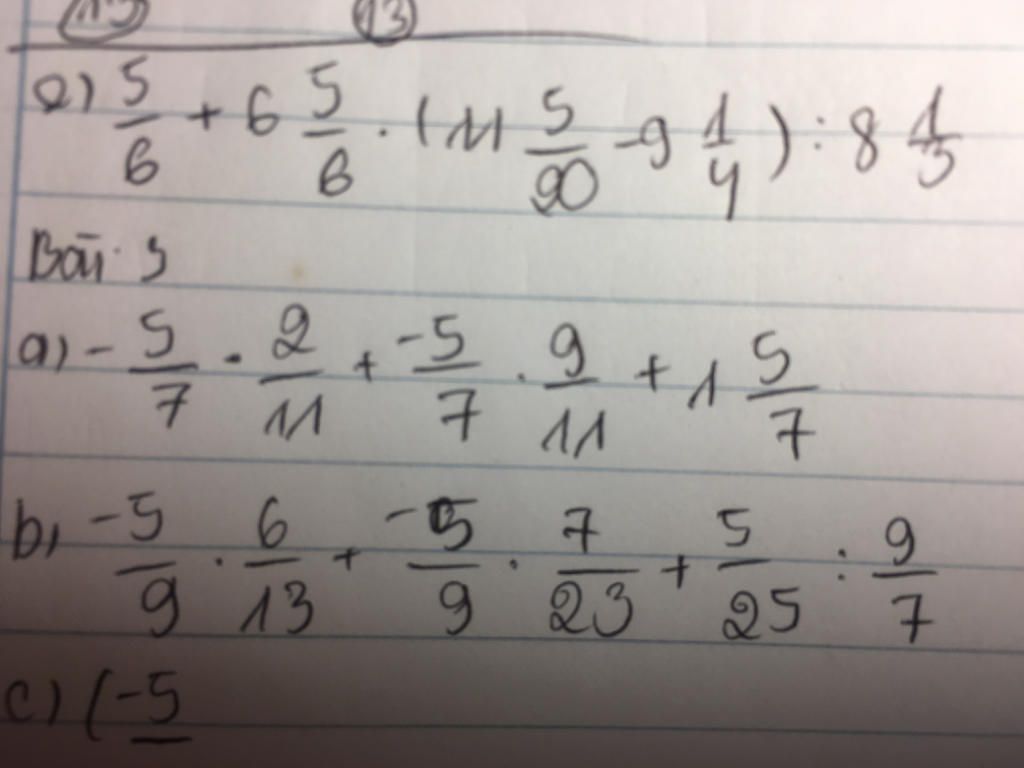 13
e) 5/6 + 6 5/6 . (11 5/20 - 9 1/4) : 8 1/3
Bài 3
a) - 5/7 . 2/11 + -5/7 . 9/11 + 1 5/7
b, -5/9 . 6/13 + -5/9 . 7/23 + 5/25 : 9/7
c) (-5